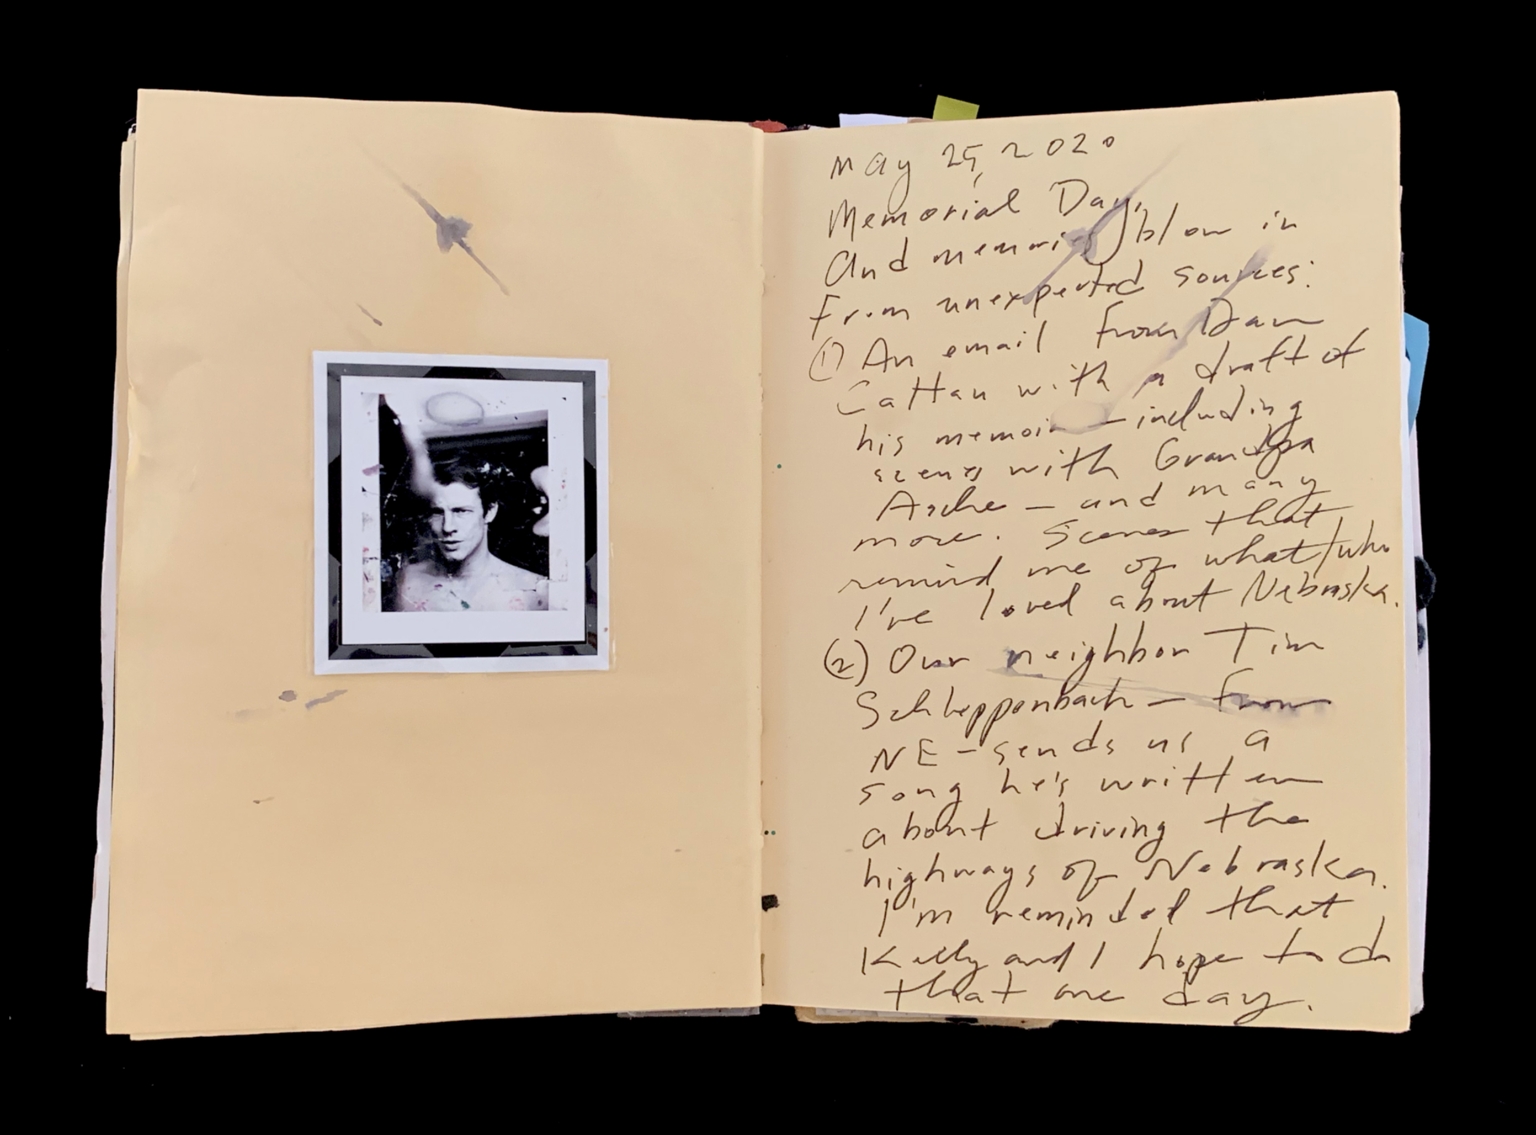 May 25, 2020
Memorial Day,
And memories blow in
from unexpected sources:
(1) An email from Dan
Cattau with a draft of
his memoir – including
scenes with Grandpa
Arche – and many
more. Scenes that
remind me of what/who
I've loved about Nebraska.
(2) Our neighbor Tim
Schleppenbach – from
NE – sends us a
song he's written
about driving the
highways of Nebraska.
I'm reminded that
Kelly and I hope to do
that one day.